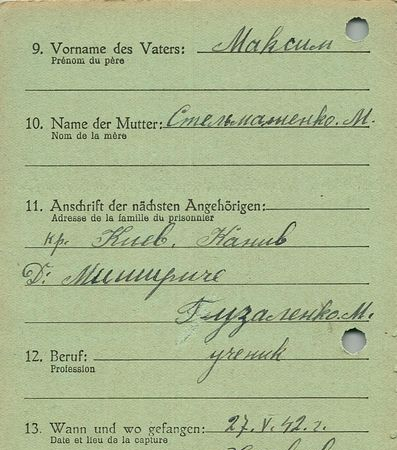 9. Vorname des Vaters: Максим
Prénom du père
10. Name der Mutter: Стельмашенко. М.
Nom de la mère
11. Anschrift der nächsten Angehörigen:
Adresse de la famille du prisonnier
кр. Киев, Канив
Д:
Глузаленко. М.
12. Beruf: ученик
Profession
13. Wann und wo gefangen: 27. V. 42. г.
Date et lieu de la capture